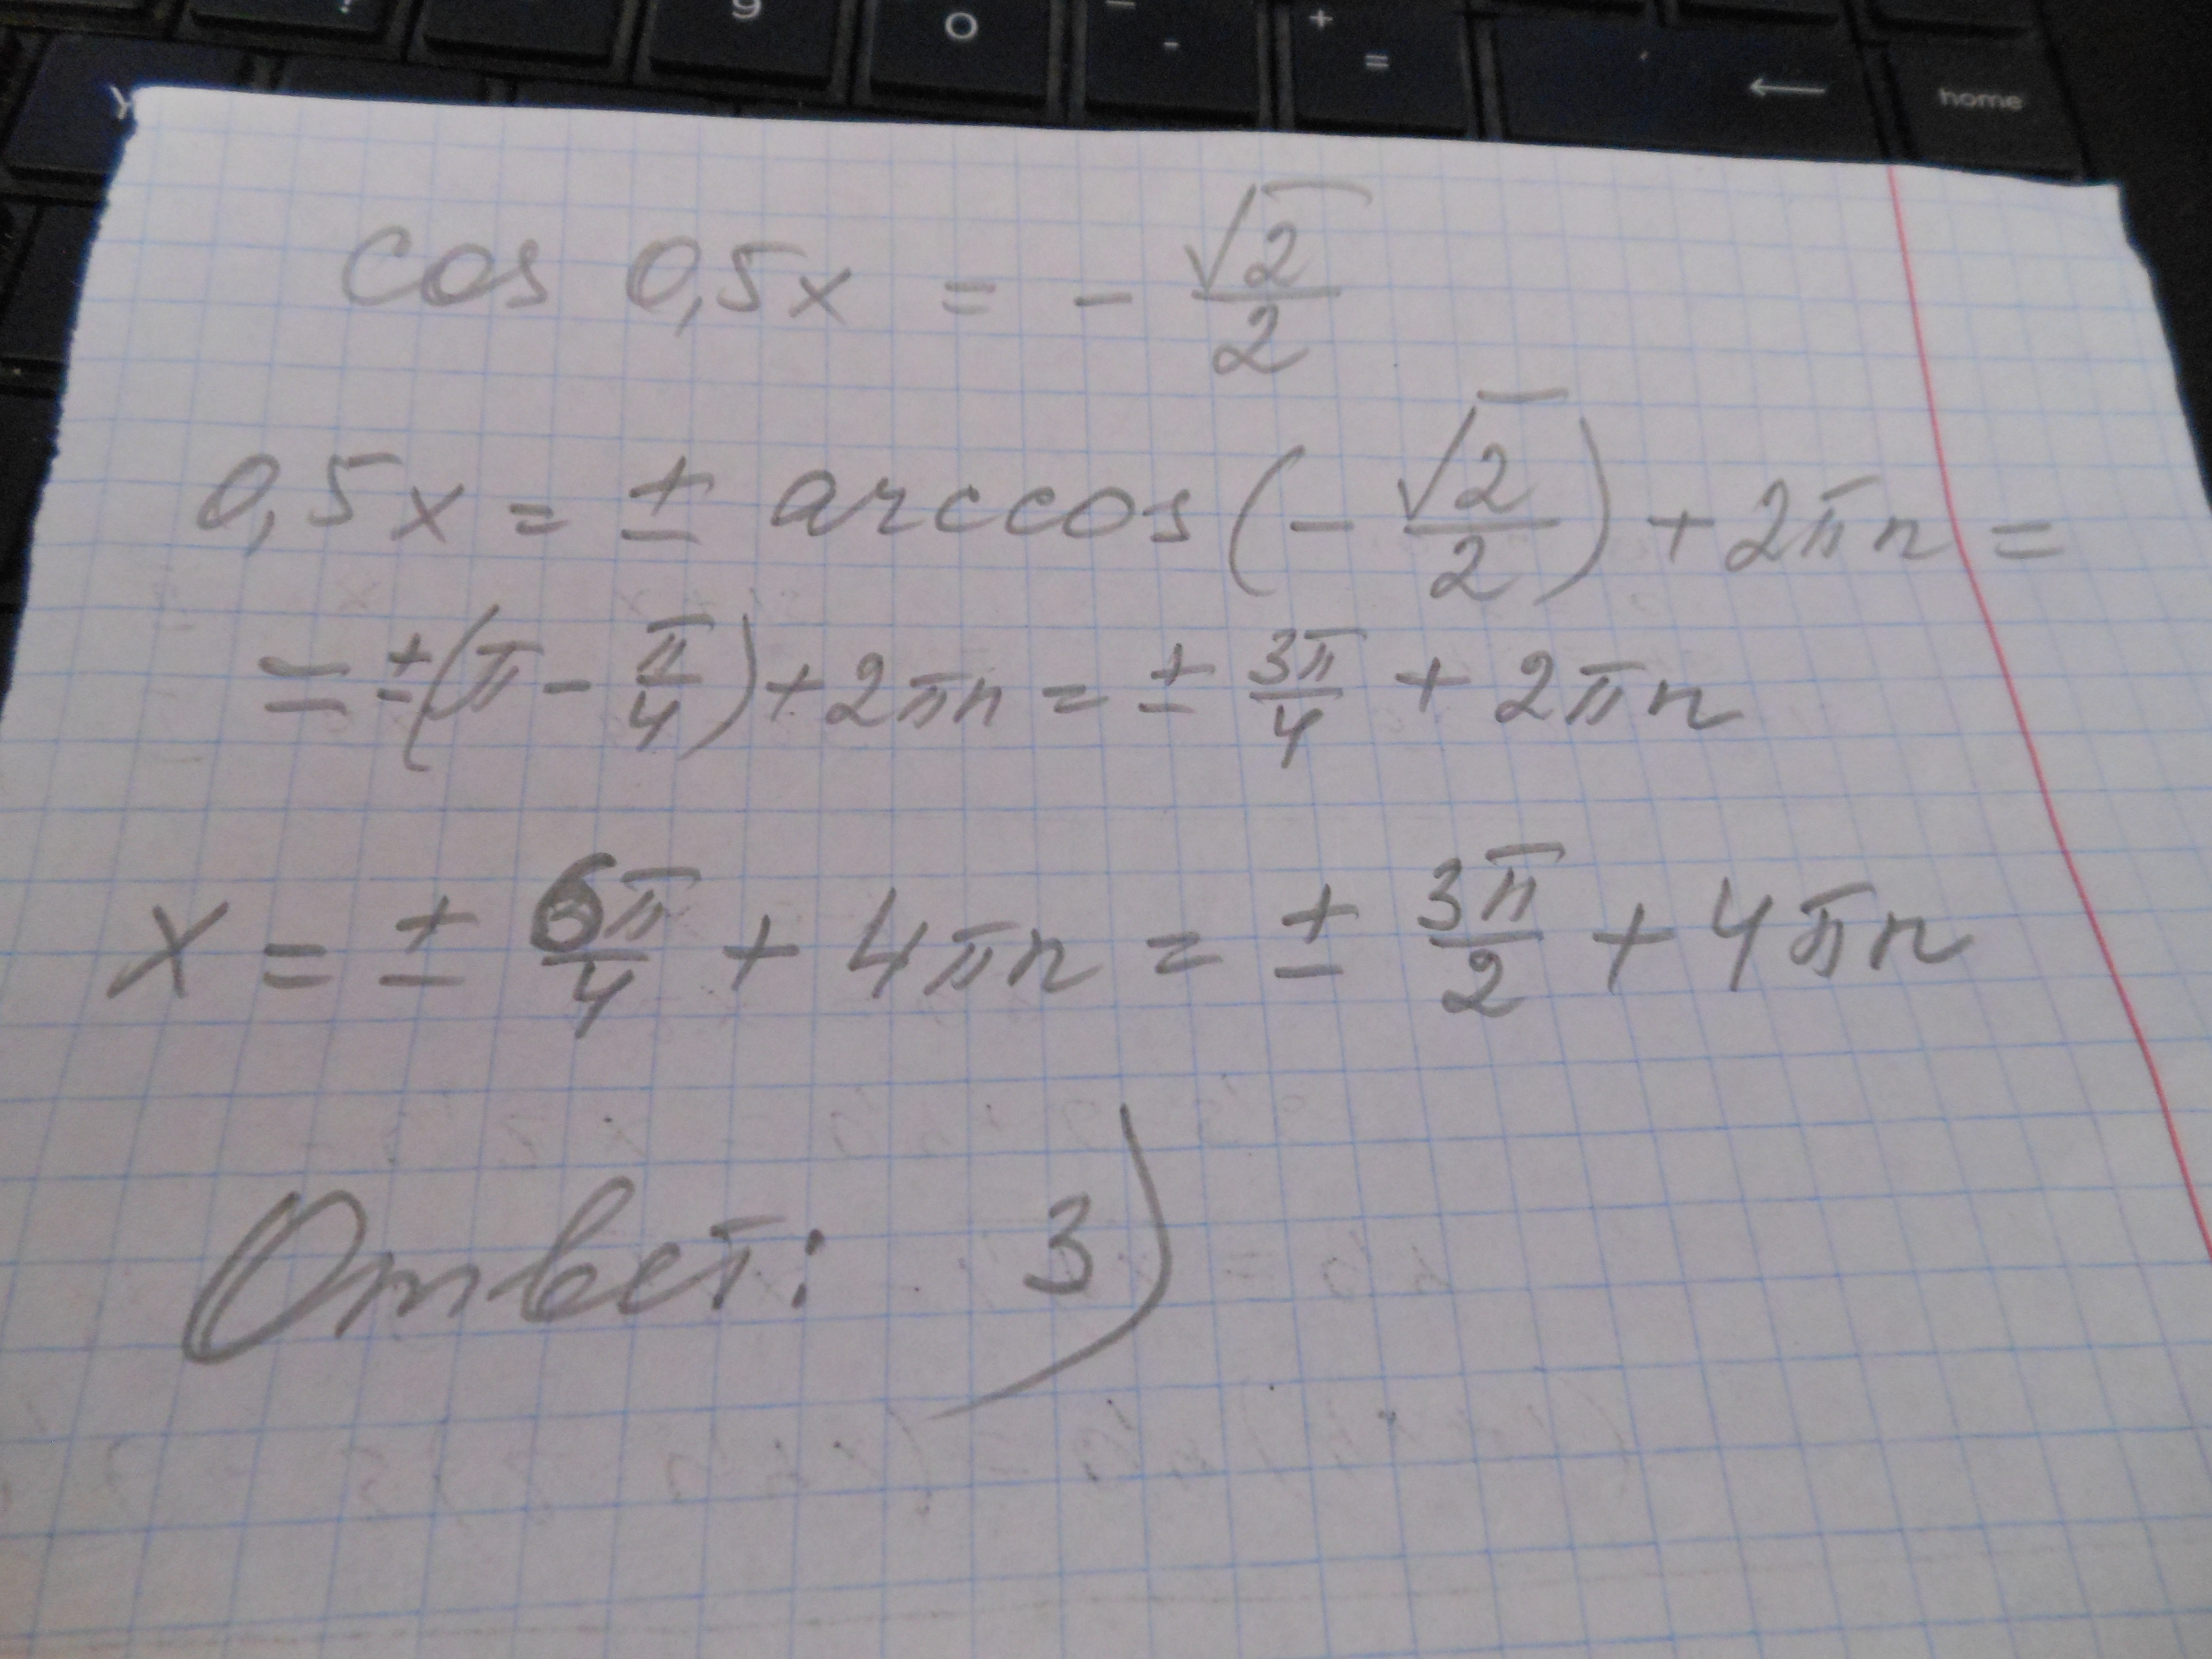 9 0 - - + = ← home
cos 0,5x = - √2/2
0,5x = ± arccos(- √2/2) + 2πn =
= ±(π - π/4) + 2πn = ± 3π/4 + 2πn
x = ± 6π/4 + 4πn = ± 3π/2 + 4πn
Ответ: 3)